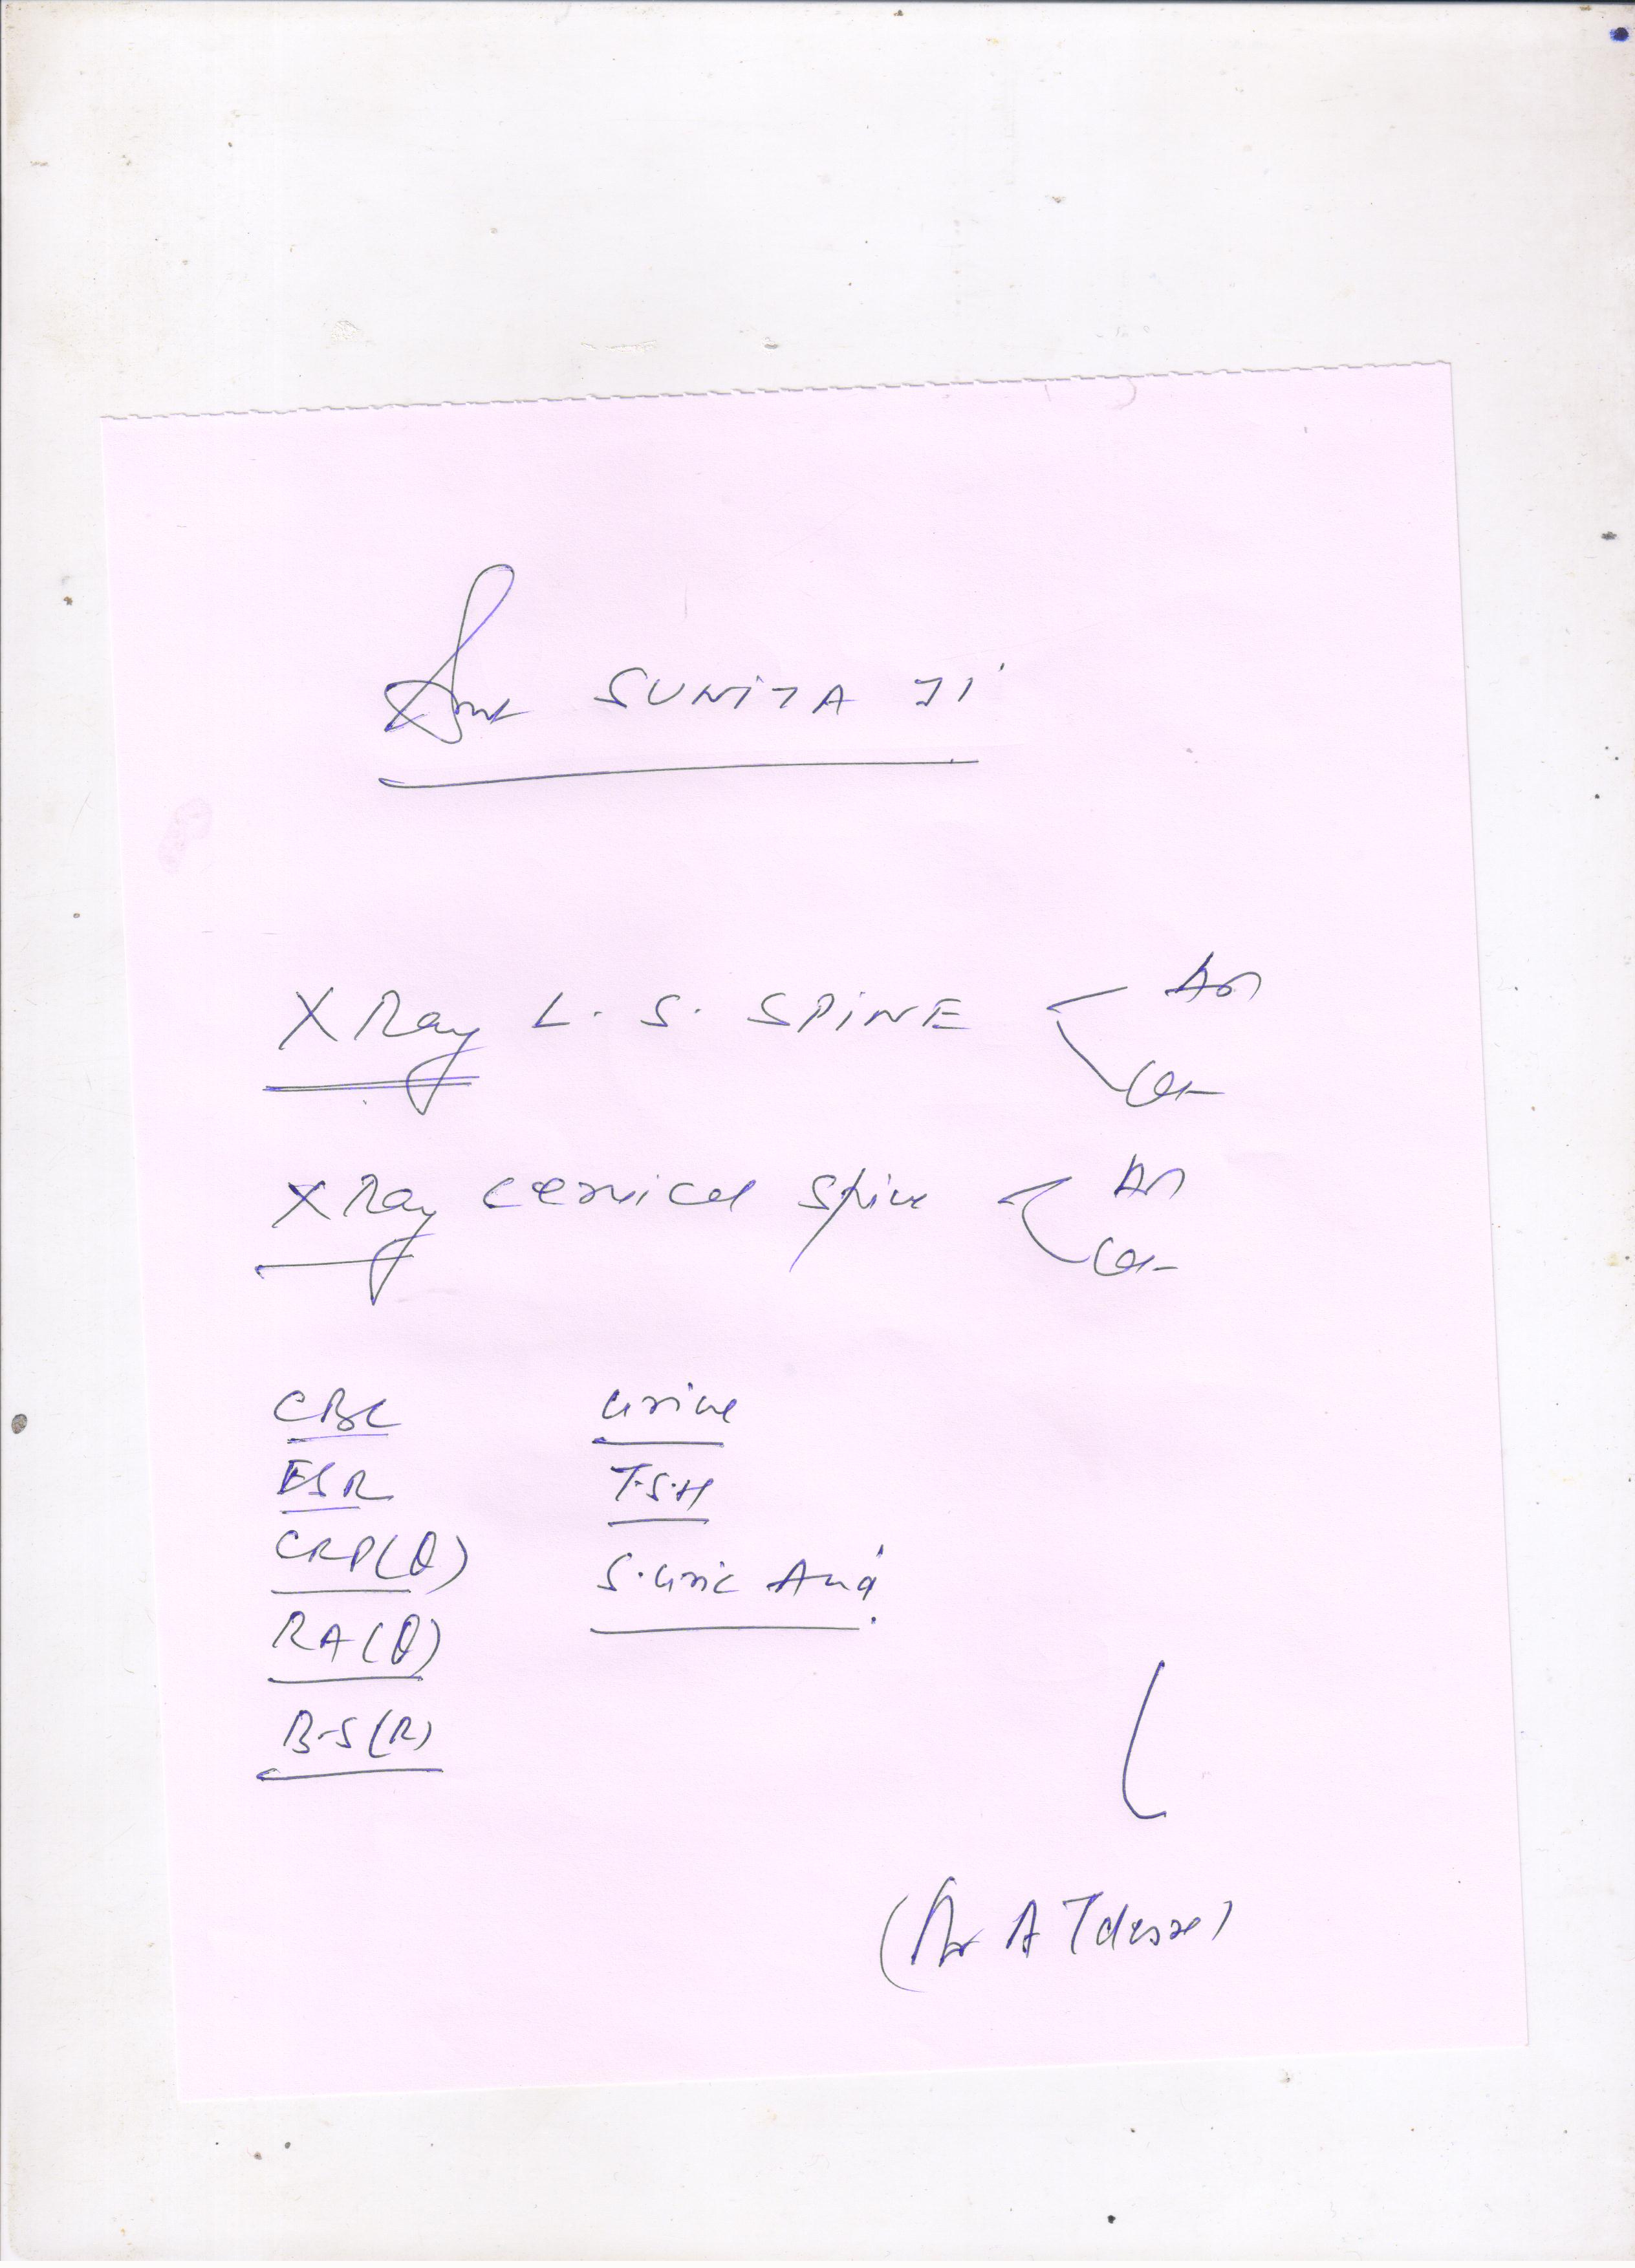 Smt SUNITA JI
X Ray L. S. SPINE < AP
Lat
X Ray cervical spine < AP
Lat
CBC
ESR
CRP(Q)
RA(Q)
B.S(R)
urine
T.S.H
S. uric Acid
(Dr A